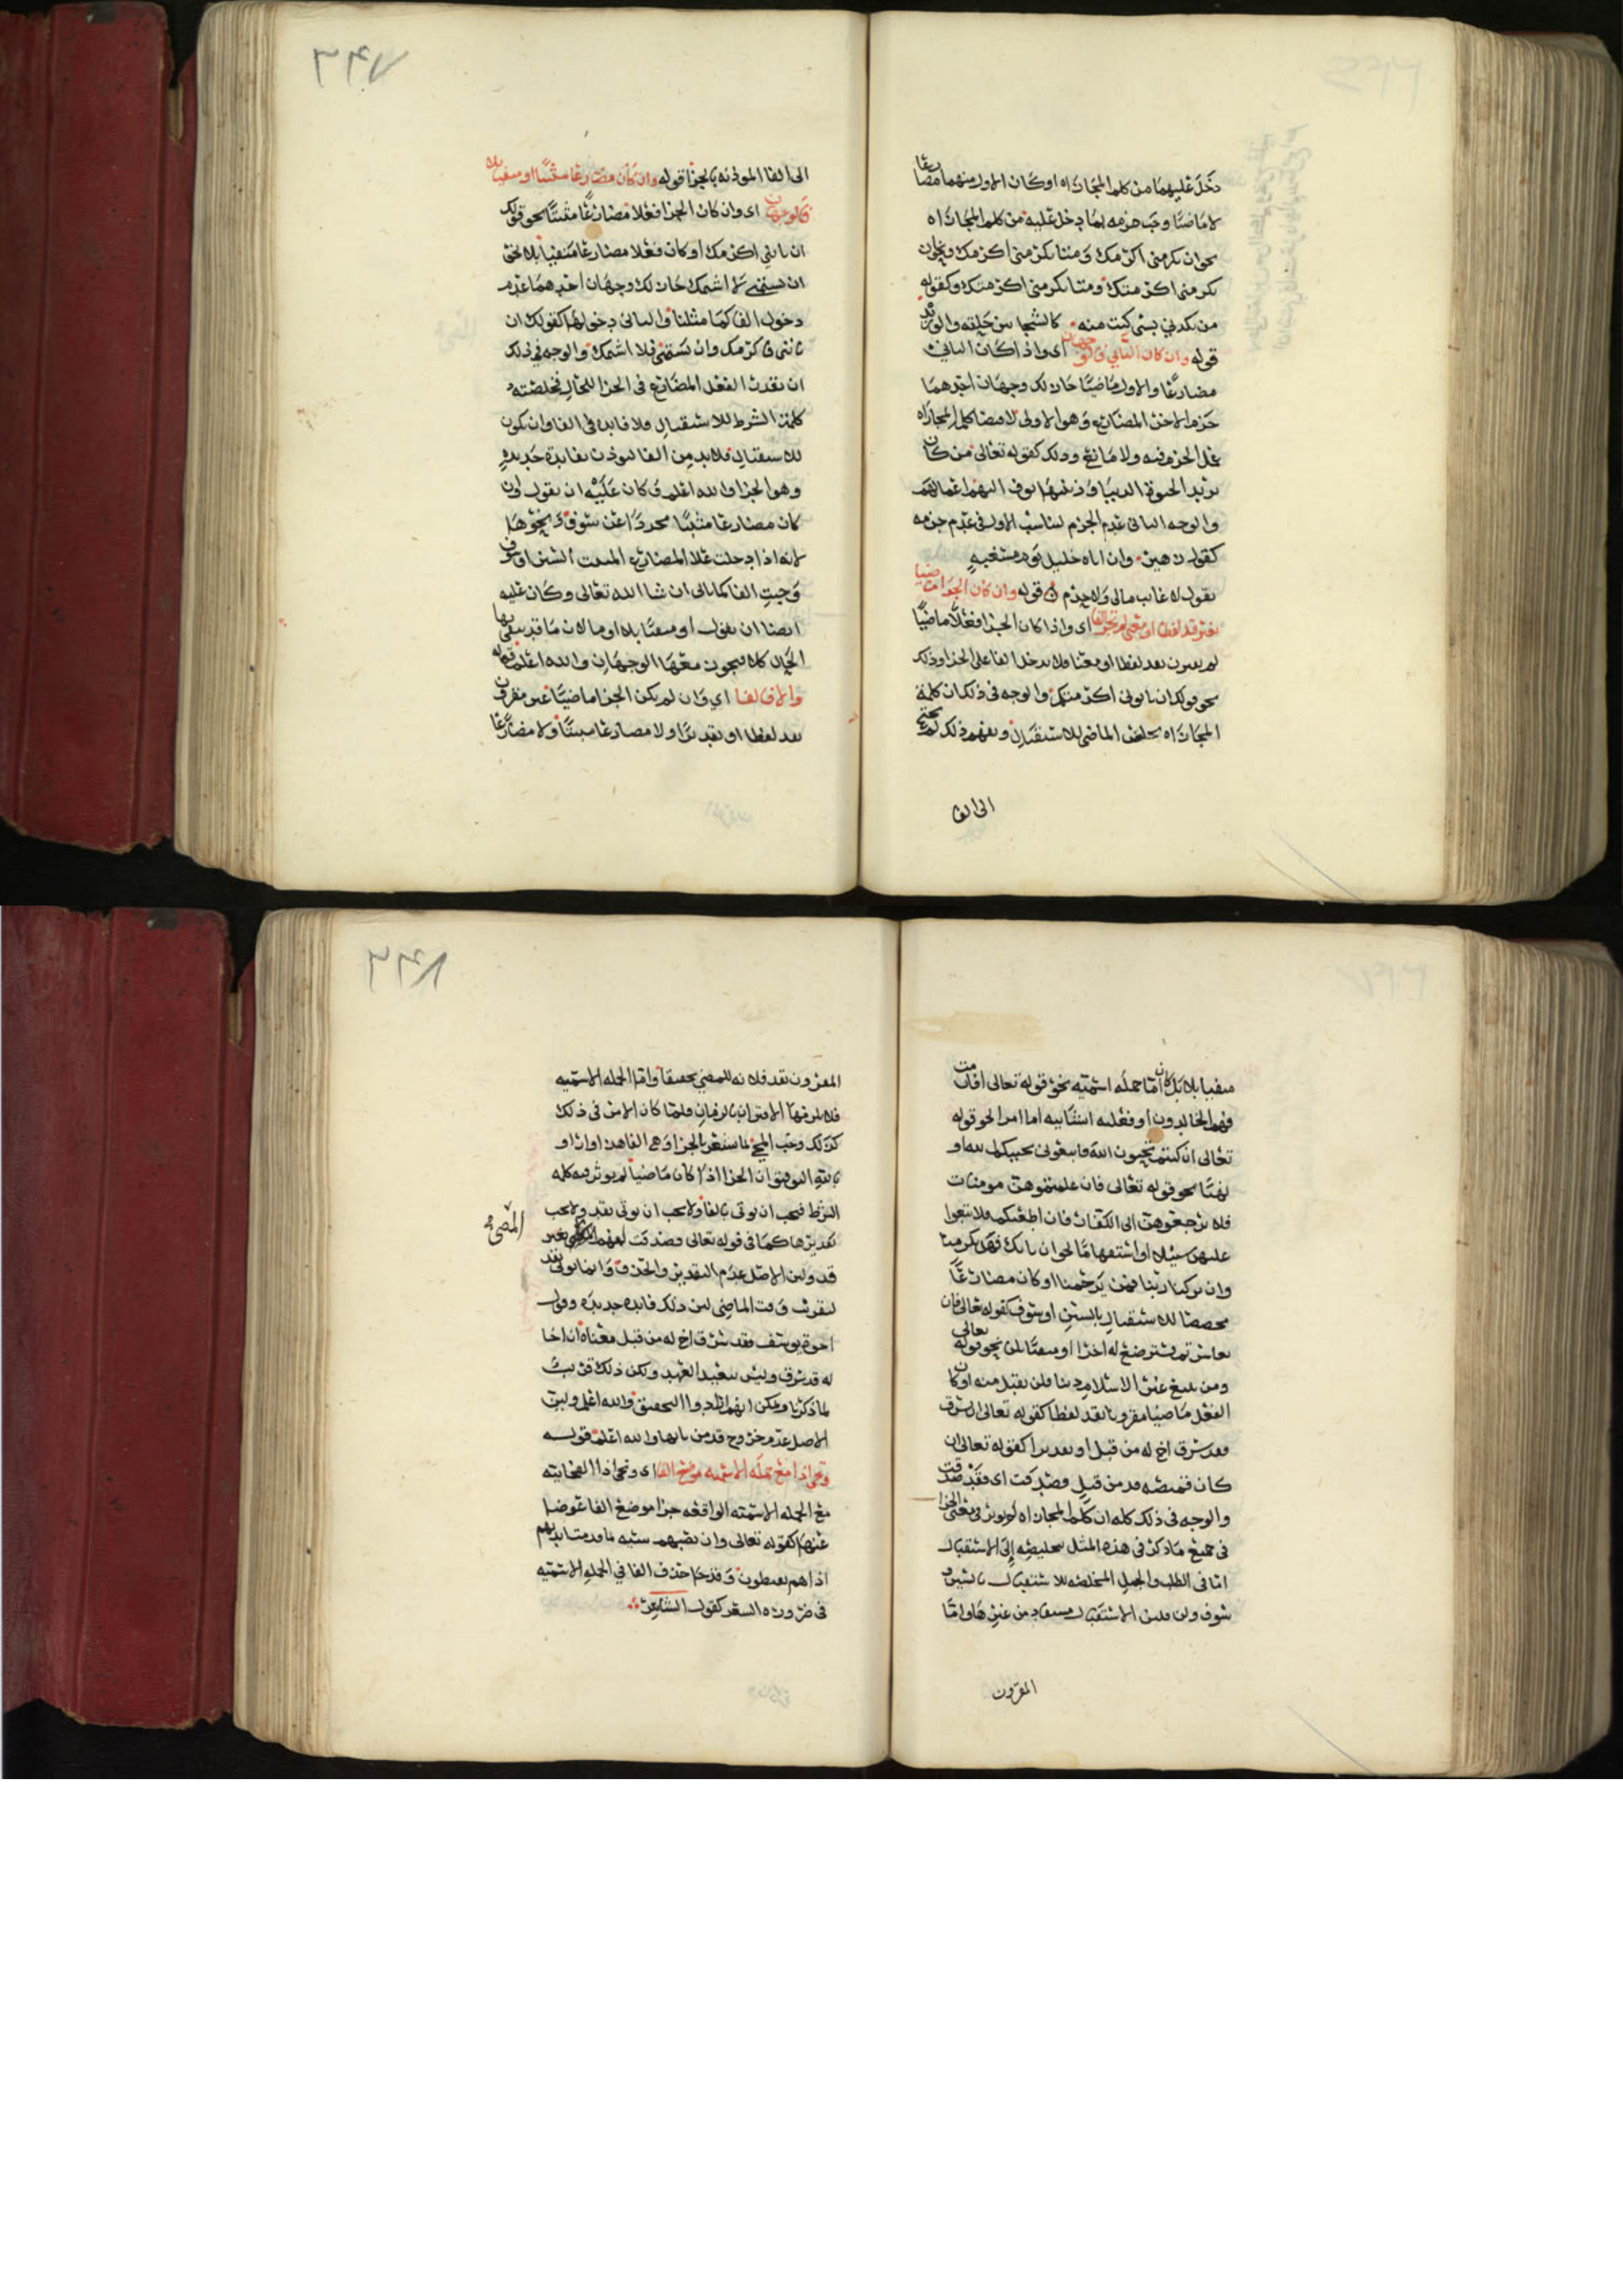 دخل عليهما من كلم المجازاه او كان الاول منهما مضارعا
لا ماضيا وجب جزمه بما دخل عليه من كلم المجازاه
نحو ان تكرمني اكرمك ومتا تكرمني اكرمك ونحو ان
تكرمني اكرمتك ومتا تكرمني اكرمتك وكقوله
من يكدني بشي كنت منه كالشجا بين حلقه والوريد
قوله وان كان الثاني فالوجهان اي واذا كان الثاني
مضارعا والاول ماضيا جاز لك وجهان احدهما
جزم الاخر المضارع وهو الاولى لاقتضا كلم المجازاه
عمل الجزم فيه ولا مانع وذلك كقوله تعالى من كان
يريد الحيوة الدنيا وزينتها نوف اليهم اعمالهم
والوجه الثاني عدم الجزم لتناسب الاول في عدم جزمه
كقول زهير وان اتاه خليل يوم مسغبه
يقول لا غايب مالي ولا حرم قوله وان كان الجزا ماضيا
بغير قد لفظا او معنى لم تجز الفا اي واذا كان الجزا فعلا ماضيا
لم يقرن بقد لفظا او معنا فلا يدخل الفا على الجزا وذلك
نحو قولك ان تاتوني اكرمتكم والوجه في ذلك ان كلمة
المجازاه تخلص الماضي للاستقبال ويفهم ذلك فلم يحتج
الى الفا
٢٤٧
الى الفا الموذنه بالجزا قوله وان كان مضارعا مثبتا او منفيا بلا
فالوجهان اي وان كان الجزا فعلا مضارعا مثبتا نحو قولك
ان تاتني اكرمك او كان فعلا مضارعا منفيا بلا نحو
ان تشتمني لا اشتمك جاز لك وجهان احدهما عدم
دخول الفا كما مثلنا والثاني دخولها كقولك ان
تاتني فاكرمك وان تشتمني فلا اشتمك والوجه في ذلك
ان تقدر الفعل المضارع في الجزا للحال فخلصته
كلمة الشرط للاستقبال فلا فايده في الفا وان يكون
للاستقبال فلا بد من الفا لتوذن بفايدة جديده
وهو الجزا والله اعلم وكان عليه ان يقول وان
كان مضارعا مثبتا مجردا عن سوف ونحوها
لانه اذا دخلت على المضارع المثبت السين او سوف
وجبت الفا كما ياتي ان شا الله تعالى وكان عليه
ايضا ان يقول او منفيا بلا او ما لان ما قد ينفي بها
الحال كلا فيجوز معها الوجهان والله اعلم قوله
والا فالفا اي وان لم يكن الجزا ماضيا غير مقرون
بقد لفظا او تقديرا ولا مضارعا مثبتا ولا مضارعا
منفيا بلا بل كان اما جملة اسميه نحو قوله تعالى افان مت
فهم الخالدون او فعليه انشاييه اما امرا نحو قوله
تعالى ان كنتم تحبون الله فاتبعوني يحببكم الله او
نهيا نحو قوله تعالى فان علمتموهن مومنات
فلا ترجعوهن الى الكفار فان اطعنكم فلا تبغوا
عليهن سبيلا او استفهاما نحو ان ياتك فهل تكرمه
وان تركنا ربنا فمن يرحمنا او كان مضارعا
مخصصا للاستقبال بالسين او سوف كقوله تعالى فان
تعاسرتم فسترضع له اخرى او منفيا بلن نحو قوله تعالى
ومن يبتغ غير الاسلام دينا فلن يقبل منه او كان
الفعل ماضيا مقرونا بقد لفظا كقوله تعالى ان يسرق
فقد سرق اخ له من قبل او تقديرا كقوله تعالى ان
كان قميصه قد من قبل فصدقت اي فقد صدقت
والوجه في ذلك كله ان كلم المجازاه لم توثر في معنى الجزا
في جميع ما ذكر في هذه المثل تخليصه الى الاستقبال
اما في الطلب والجمل المخلصه للاستقبال بالسين و
سوف ولن فلان الاستقبال مستفاد من غيرها واما
المقرون
٢٤٨
المقرون بقد فلانه للمضي تحقيقا واما الجمله الاسميه
فلا يلزمها الاقتران بالزمان فلما كان الامر في ذلك
كذلك وجب المجي بما يشعر بالجزا وهي الفا هذا وازا و
بالله التوفيق ان الجزا اذا كان ماضيا لم يوثر فيه كلمه
الشرط فيجب ان يوتى بالفا ولا يجب ان يوتى بقد ولا يجب
تقديرها كما في قوله تعالى فصدقت لفهم المضي بغير
قد ولان الاصل عدم التقدير والحذف وانما يوتى بقد
لتقريب وقت الماضي لان ذلك فايده جديده وقول
اخوة يوسف فقد سرق اخ له من قبل معناه ان اخا
له قد سرق وليس ببعيد العهد ولكن ذلك قريب
لما ذكرنا ويمكن انهم ارادوا التحقيق والله اعلم ولان
الاصل عدم خروج قد من بابها والله اعلم قوله
وتجي اذا مع جملة الاسميه موضع الفا اي وتجي اذا الفجاييه
مع الجمله الاسميه الواقعه جزا موضع الفا عوضا
عنها كقوله تعالى وان تصبهم سيئه بما قدمت ايديهم
اذا هم يقنطون وقد جا حذف الفا في الجمله الاسميه
في ضروره الشعر كقول الشاعر
المضي